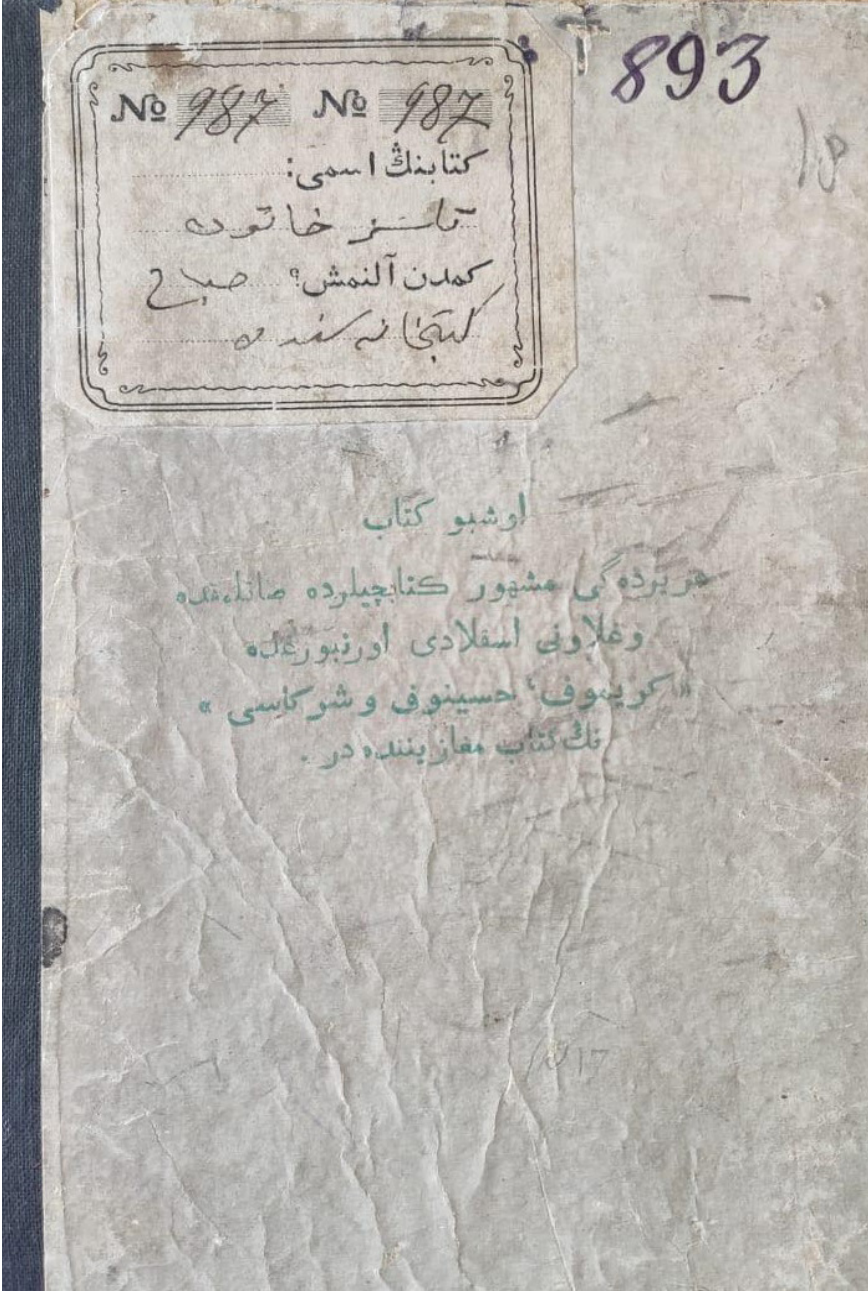 893
№ 987 № 987
كتابنڭ اسمى:
خاتون
كمدن آلنمش؟ صباح
كتبخانه سندن
اوشبو كتاب
هر يردەگى مشهور كتابچيلردە صاتلەدە
وغلاونى اسقلادى اورنبورغدە
«كريموف، حسينوف و شركاسى»
نڭ كتاب مغازيننده در.